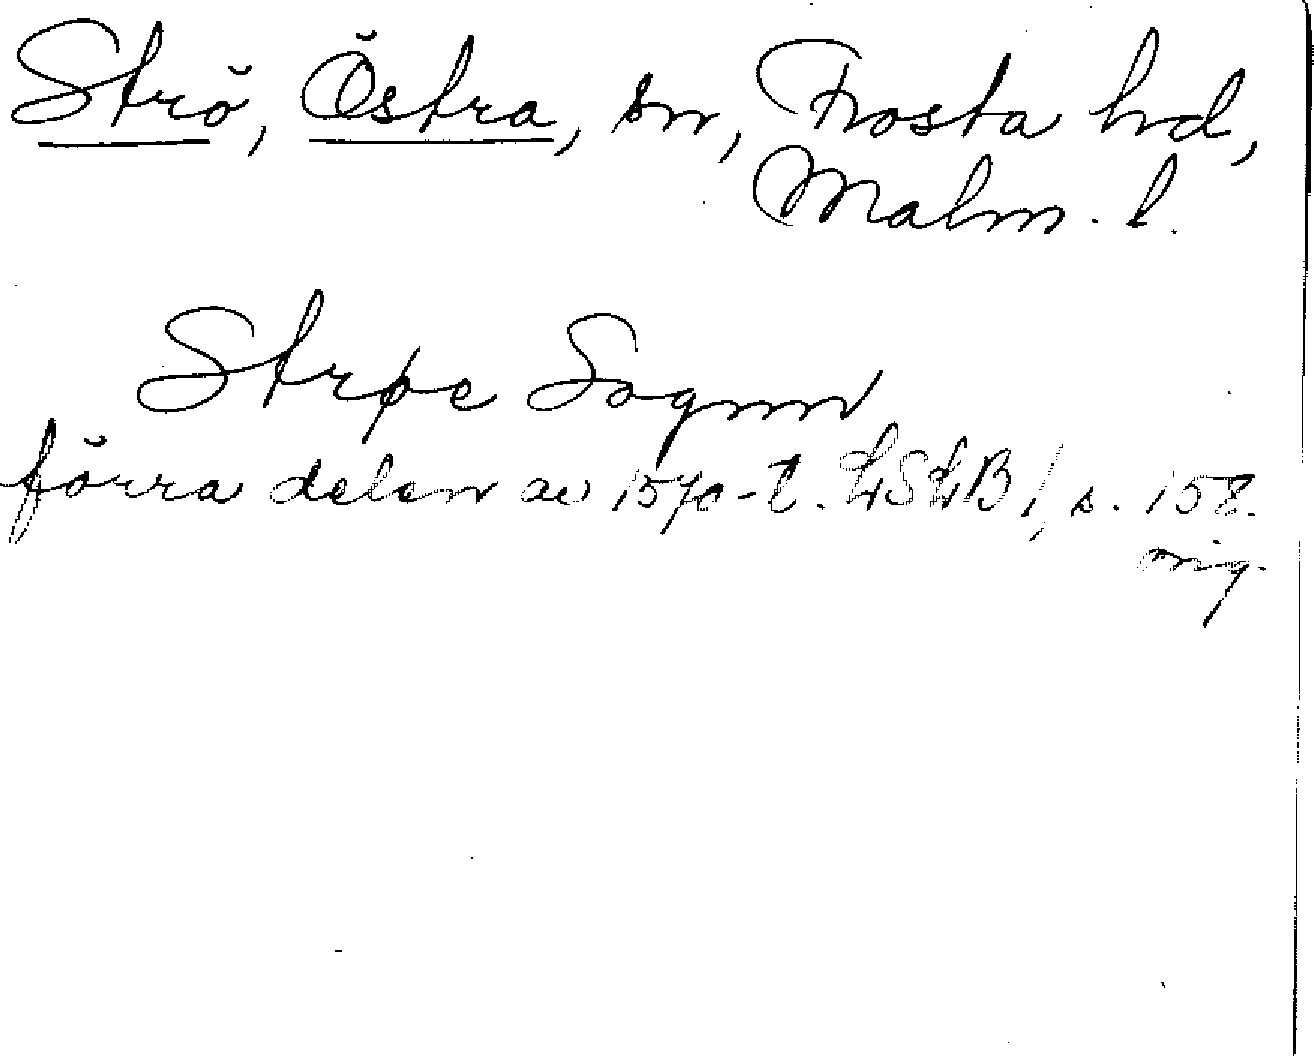 Strö, Östra, sn, Frosta hd,
Malm. l.
Strøe Sognn
förra delen av 1570-t. LSLB, s. 158.
orig.